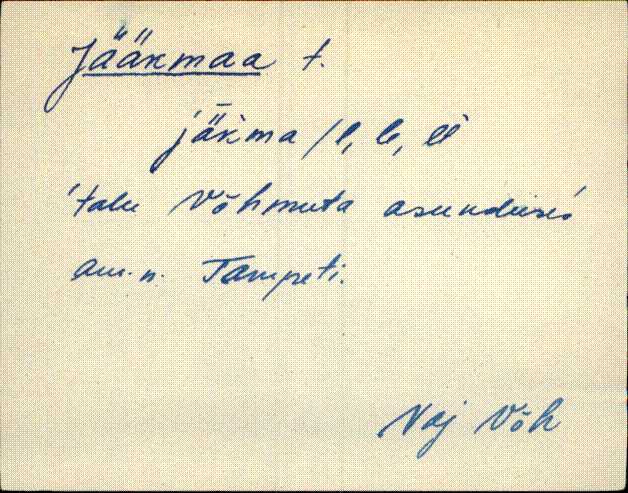 Jääkmaa t.
jä̆kma /l, le, lt
'talu Võhmuta asunduses'
am. n. Tampeti.
Vaj Võh